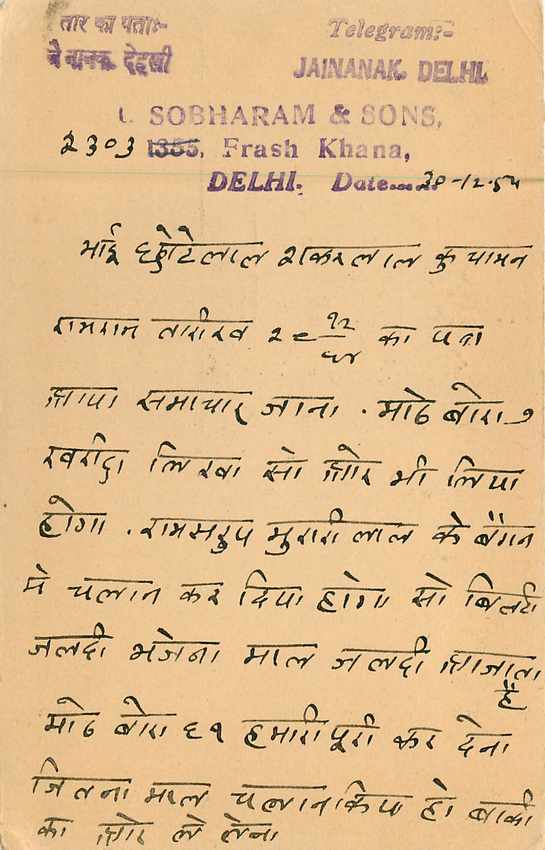 तार का पता:-
जैनानक देहली
Telegram:-
JAINANAK. DELHI.
L. SOBHARAM & SONS,
2303 1355, Frash Khana,
DELHI. Date...... 30-12-54
भाई छोटेलाल शंकरलाल कु
रामराम तारीख २९ १२/५४ का पत्र
आया समाचार जाना . मोठ बोरा ७
खरीदा लिखा सो और भी लिया
होगा . रामसरुप मुरारीलाल के बैगन
मे चलान कर दिया होगा सो बिलटी
जलदी भेजना माल जलदी आजाता
है
मोठ बोरा ६१ हमारी पूरी कर देना
जितना माल चलान किया हो बाकी
का और ले लेना